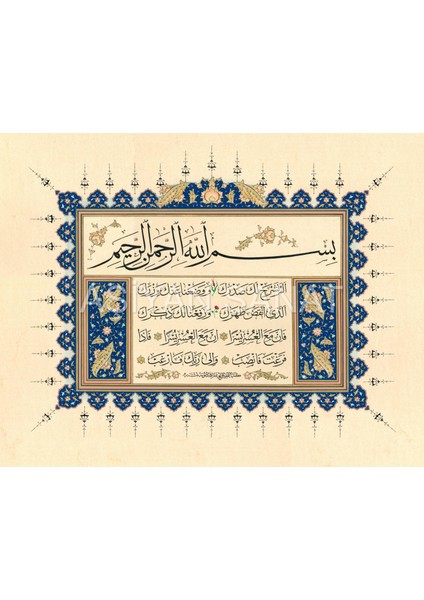 بِسْمِ اللّٰهِ الرَّحْمٰنِ الرَّحِيمِ
اَلَمْ نَشْرَحْ لَكَ صَدْرَكَ وَوَضَعْنَا عَنْكَ وِزْرَكَ
اَلَّذِى اَنْقَضَ ظَهْرَكَ وَرَفَعْنَا لَكَ ذِكْرَكَ
فَاِنَّ مَعَ الْعُسْرِ يُسْرًا اِنَّ مَعَ الْعُسْرِ يُسْرًا فَاِذَا
فَرَغْتَ فَانْصَبْ وَاِلٰى رَبِّكَ فَارْغَبْ